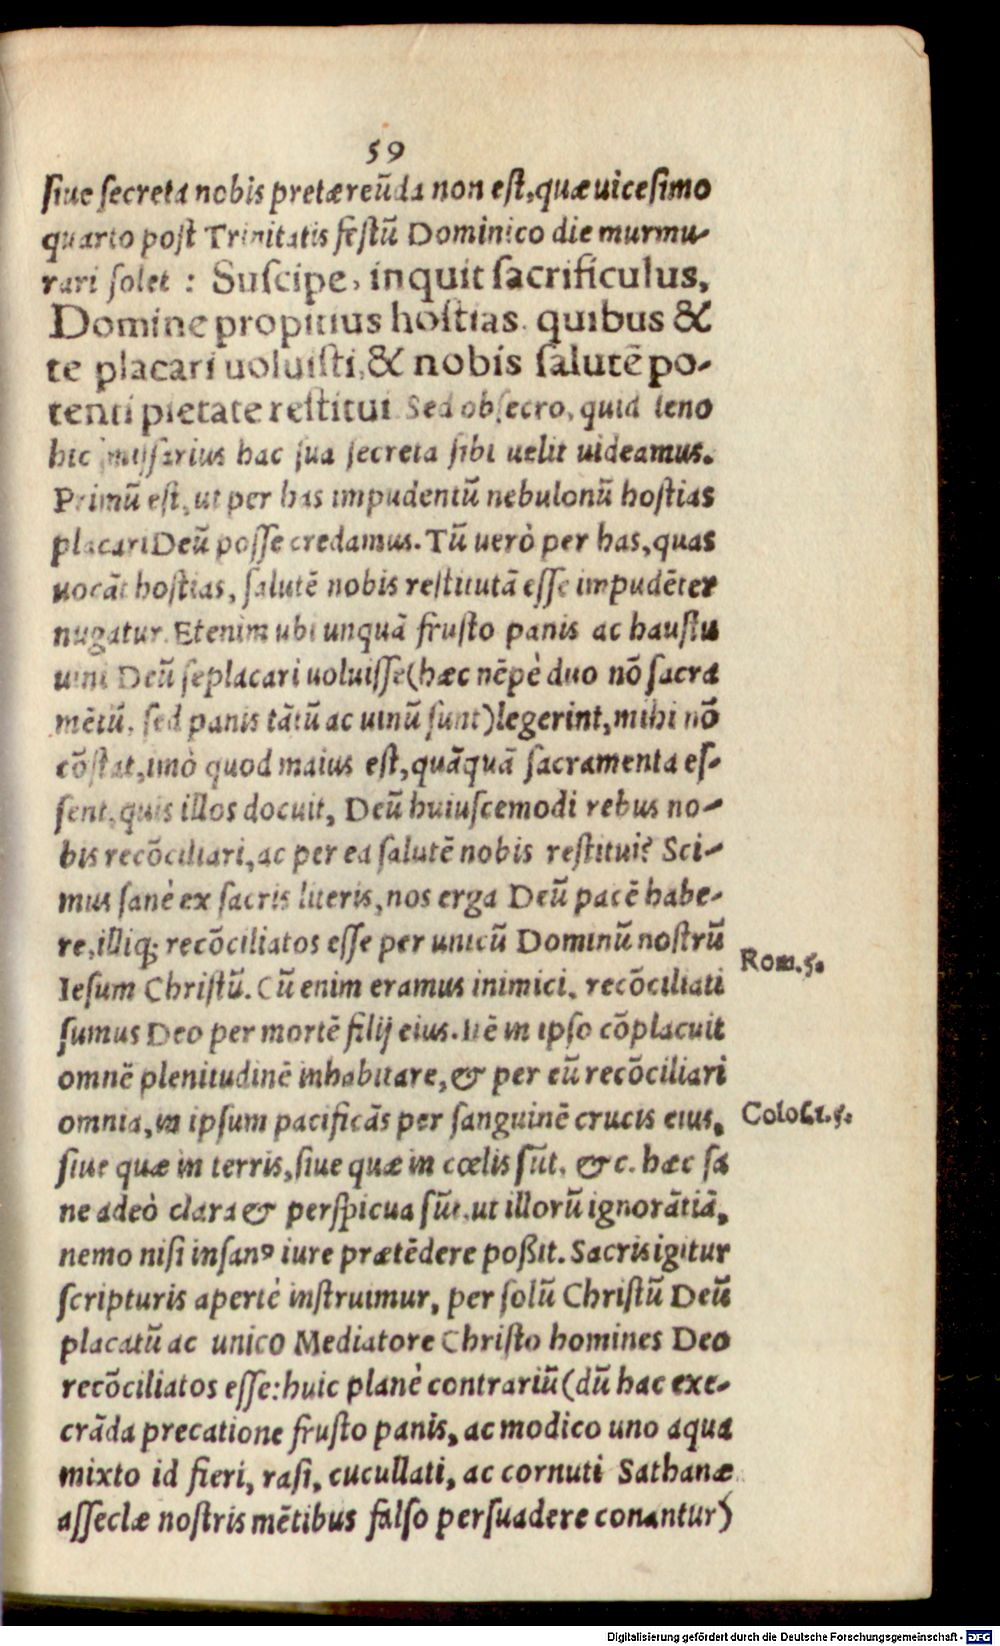 59
ſiue ſecreta nobis pretæreũda non eſt, quæ uiceſimo
quarto poſt Trinitatis feſtũ Dominico die murmu-
rari ſolet : Suſcipe, inquit ſacrificulus,
Domine propitius hoſtias, quibus &
te placari uoluiſti, & nobis ſalutẽ po-
tenti pietate reſtitui. Sed obſecro, quid leno
hic miſſarius hac ſua ſecreta ſibi uelit uideamus.
Primũ eſt, ut per has impudentũ nebulonũ hoſtias
placari Deũ poſſe credamus. Tũ uerò per has, quas
uocãt hoſtias, ſalutẽ nobis reſtitutã eſſe impudẽter
nugatur. Etenim ubi unquã fruſto panis ac hauſtu
uini Deũ ſeplacari uoluiſſe (hæc nẽpè duo nõ ſacra
mẽtũ, ſed panis tãtũ ac uinũ ſunt) legerint, mihi nõ
cõſtat, imò quod maius eſt, quãquã ſacramenta eſ-
ſent, quis illos docuit, Deũ huiuſcemodi rebus no-
bis recõciliari, ac per ea ſalutẽ nobis reſtitui? Sci-
mus ſanè ex ſacris literis, nos erga Deũ pacẽ habe-
re, illiq; recõciliatos eſſe per unicũ Dominũ noſtrũ
Ieſum Chriſtũ. Cũ enim eramus inimici, recõciliati
Rom. 5.
ſumus Deo per mortẽ filij eius. Itẽ in ipſo cõplacuit
omnẽ plenitudinẽ inhabitare, & per eũ recõciliari
omnia, in ipſum pacificãs per ſanguinẽ crucis eius,
Coloſ. 1. 5.
ſiue quæ in terris, ſiue quæ in cœlis ſũt, & c. hæc ſa
ne adeò clara & perſpicua ſũt, ut illorũ ignorãtiã,
nemo niſi inſanꝰ iure prætẽdere poßit. Sacris igitur
ſcripturis apertè inſtruimur, per ſolũ Chriſtũ Deũ
placatũ ac unico Mediatore Chriſto homines Deo
recõciliatos eſſe: huic planè contrariũ (dũ hac exe-
crãda precatione fruſto panis, ac modico uno aqua
mixto id fieri, raſi, cucullati, ac cornuti Sathanæ
aſſeclæ noſtris mẽtibus falſo perſuadere conantur)
Digitalisierung gefördert durch die Deutsche Forschungsgemeinschaft - DFG